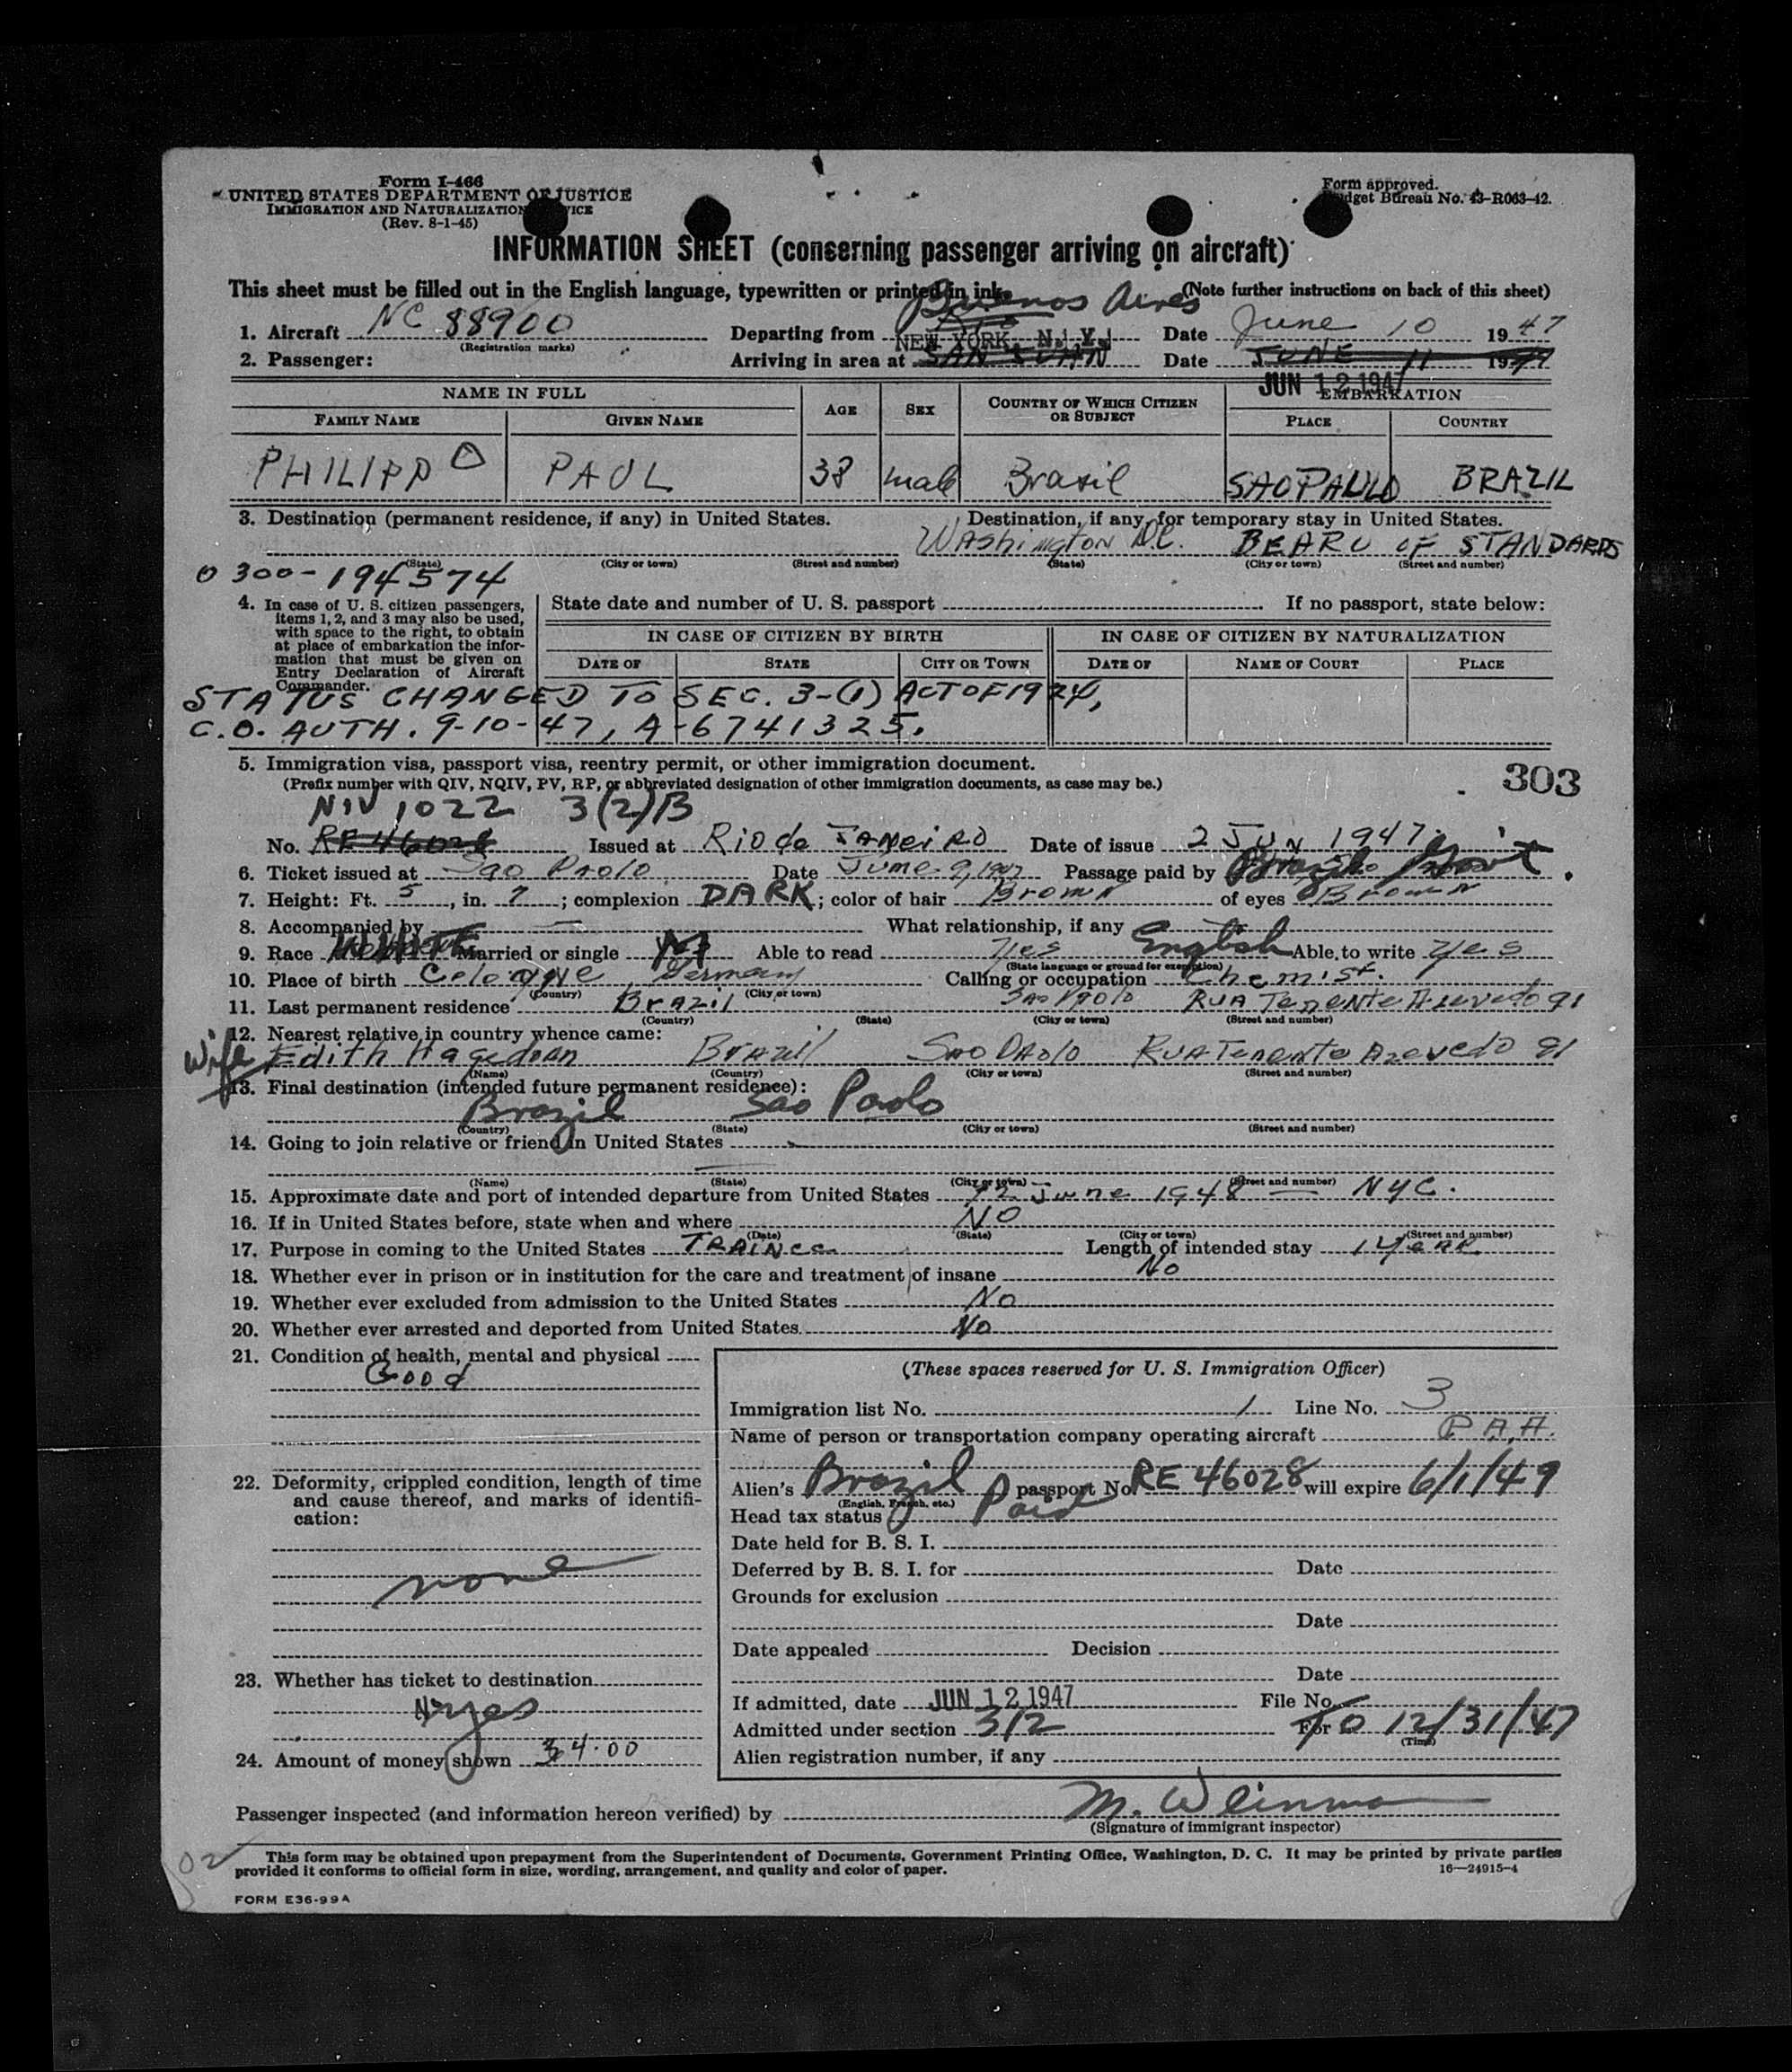 Form I-466
UNITED STATES DEPARTMENT OF JUSTICE
IMMIGRATION AND NATURALIZATION SERVICE
(Rev. 8-1-45)
Form approved.
Budget Bureau No. 43-R063-42.
INFORMATION SHEET (concerning passenger arriving on aircraft)
This sheet must be filled out in the English language, typewritten or printed in ink. (Note further instructions on back of this sheet)
Buenos Aires
1. Aircraft NC 88900 Departing from Rio Date June 10 1947
(Registration marks) NEW YORK, N. Y.
2. Passenger: Arriving in area at SAN JUAN Date JUNE 11 1947
JUN 12 1947
NAME IN FULL AGE SEX COUNTRY OF WHICH CITIZEN OR SUBJECT EMBARKATION
FAMILY NAME GIVEN NAME PLACE COUNTRY
PHILIPP PAUL 38 male Brasil SAO PAULO BRAZIL
3. Destination (permanent residence, if any) in United States. Destination, if any, for temporary stay in United States.
Washington DC. BEARU OF STANDARDS
(State) (City or town) (Street and number) (State) (City or town) (Street and number)
0 300-194574
4. In case of U. S. citizen passengers, items 1, 2, and 3 may also be used, with space to the right, to obtain at place of embarkation the information that must be given on Entry Declaration of Aircraft Commander.
State date and number of U. S. passport If no passport, state below:
IN CASE OF CITIZEN BY BIRTH IN CASE OF CITIZEN BY NATURALIZATION
DATE OF STATE CITY OR TOWN DATE OF NAME OF COURT PLACE
STATUS CHANGED TO SEC. 3-(1) ACT OF 1924,
C.O. AUTH. 9-10-47, A-6741325.
5. Immigration visa, passport visa, reentry permit, or other immigration document.
(Prefix number with QIV, NQIV, PV, RP, or abbreviated designation of other immigration documents, as case may be.)
303
NIV 1022 3(2)B
No. RE 46028 Issued at Rio de JANEIRO Date of issue 2 JUN 1947
6. Ticket issued at Sao Paolo Date June 9, 1947 Passage paid by Brazil Govt.
7. Height: Ft. 5, in. 7; complexion DARK; color of hair Brown of eyes Brown
8. Accompanied by — What relationship, if any
9. Race WHITE Married or single M Able to read Yes English Able to write yes
(State language or ground for exemption)
10. Place of birth Cologne Germany Calling or occupation Chemist.
(Country) (City or town)
11. Last permanent residence Brazil Sao Paolo RUA Tenente Azevedo 91
(Country) (State) (City or town) (Street and number)
12. Nearest relative in country whence came:
Wife Edith Hagedorn Brazil Sao Paolo RUA Tenente Azevedo 91
(Name) (Country) (City or town) (Street and number)
13. Final destination (intended future permanent residence):
Brazil Sao Paolo
(Country) (State) (City or town) (Street and number)
14. Going to join relative or friend in United States
(Name) (State) (City or town) (Street and number)
15. Approximate date and port of intended departure from United States 12 June 1948 — NYC.
16. If in United States before, state when and where NO
(Date) (State) (City or town) (Street and number)
17. Purpose in coming to the United States TRAINEE Length of intended stay 1 YEAR
18. Whether ever in prison or in institution for the care and treatment of insane No
19. Whether ever excluded from admission to the United States No
20. Whether ever arrested and deported from United States No
21. Condition of health, mental and physical
Good
22. Deformity, crippled condition, length of time and cause thereof, and marks of identification:
none
23. Whether has ticket to destination
yes
24. Amount of money shown 34.00
(These spaces reserved for U. S. Immigration Officer)
Immigration list No. 1 Line No. 3
Name of person or transportation company operating aircraft P.A.A.
Alien's Brazil passport No. RE 46028 will expire 6/1/49
(English, French, etc.)
Head tax status Paid
Date held for B. S. I.
Deferred by B. S. I. for Date
Grounds for exclusion
Date
Date appealed Decision
Date
If admitted, date JUN 12 1947 File No.
Admitted under section 3/2 For TO 12/31/47
(Time)
Alien registration number, if any
Passenger inspected (and information hereon verified) by M. Weinman
(Signature of immigrant inspector)
02
This form may be obtained upon prepayment from the Superintendent of Documents, Government Printing Office, Washington, D. C. It may be printed by private parties
provided it conforms to official form in size, wording, arrangement, and quality and color of paper. 16—24915-4
FORM E36-99A